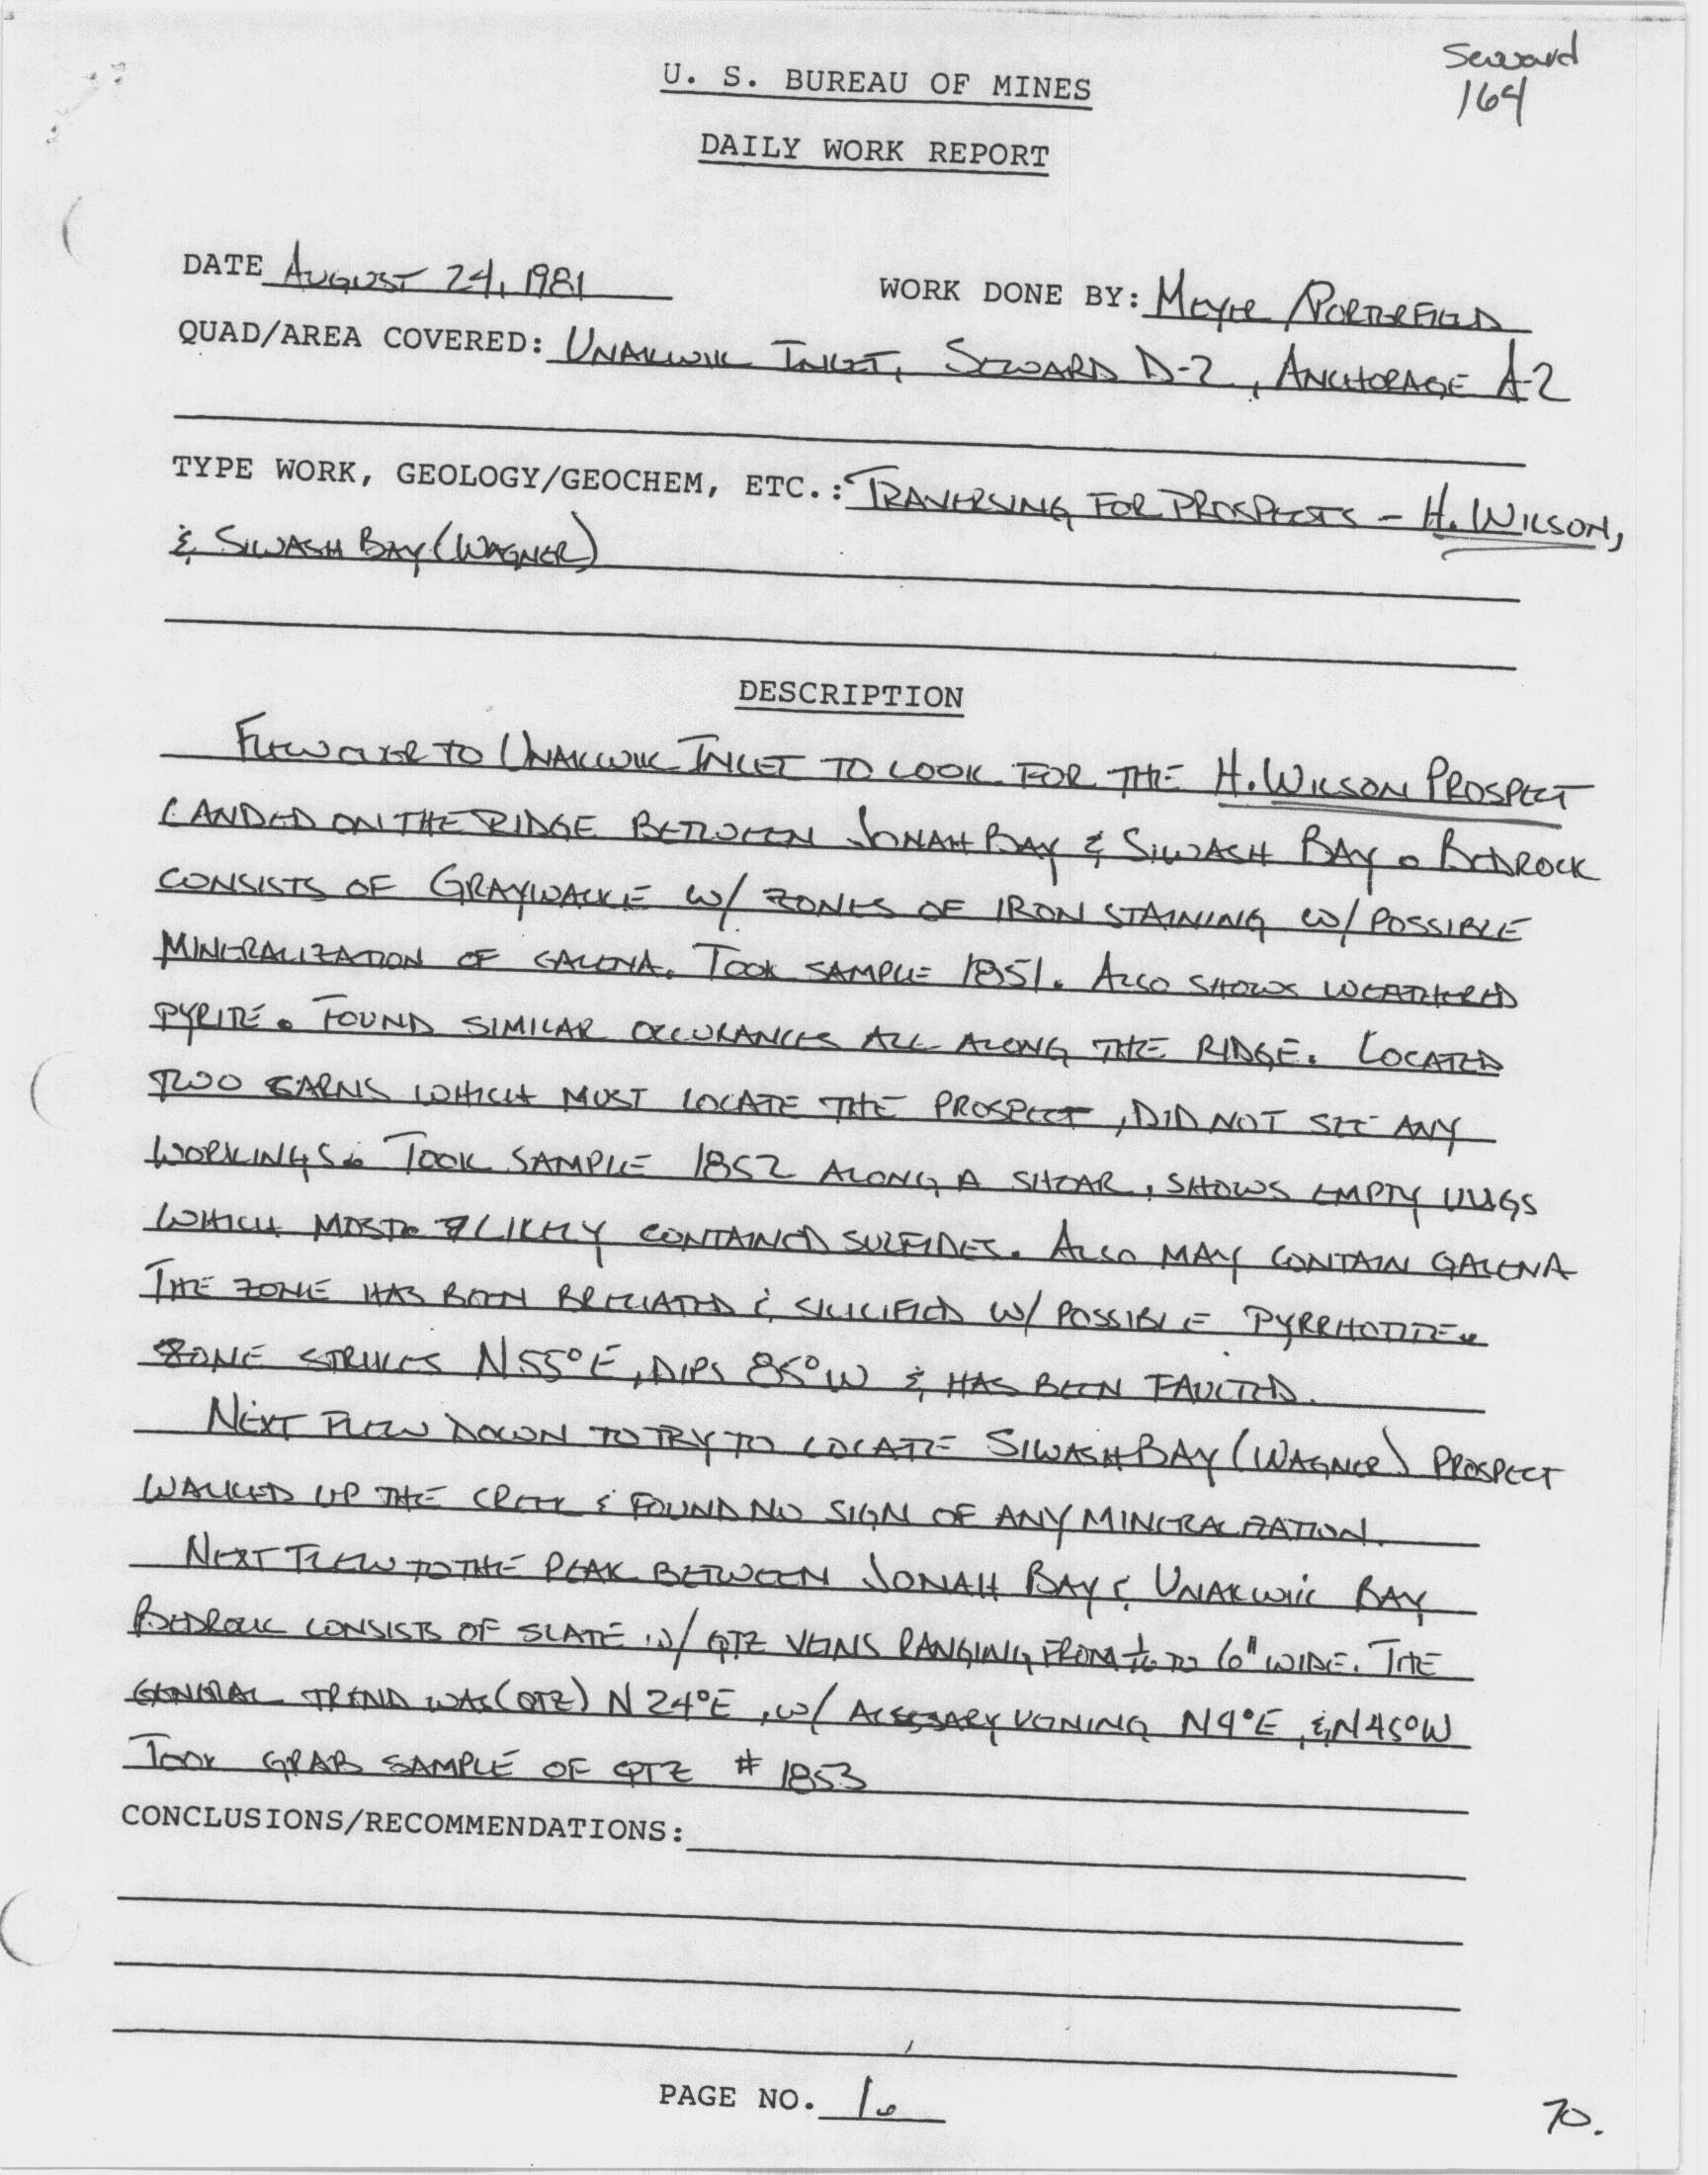 Seward
164
U. S. BUREAU OF MINES
DAILY WORK REPORT
DATE AUGUST 24, 1981 WORK DONE BY: MEYER / PORTERFIELD
QUAD/AREA COVERED: UNAKWIK INLET, SEWARD D-2, ANCHORAGE A-2
TYPE WORK, GEOLOGY/GEOCHEM, ETC.: TRAVERSING FOR PROSPECTS - H. WILSON,
& SIWASH BAY (WAGNER)
DESCRIPTION
FLEW OVER TO UNAKWIK INLET TO LOOK FOR THE H. WILSON PROSPECT
LANDED ON THE RIDGE BETWEEN JONAH BAY & SIWASH BAY. BEDROCK
CONSISTS OF GRAYWACKE W/ ZONES OF IRON STAINING W/ POSSIBLE
MINERALIZATION OF GALENA. TOOK SAMPLE 1851. ALSO SHOWS WEATHERED
PYRITE. FOUND SIMILAR OCCURANCES ALL ALONG THE RIDGE. LOCATED
TWO CARNS WHICH MUST LOCATE THE PROSPECT, DID NOT SEE ANY
WORKINGS. TOOK SAMPLE 1852 ALONG A SHEAR, SHOWS EMPTY VUGS
WHICH MOST LIKELY CONTAINED SULFIDES. ALSO MAY CONTAIN GALENA
THE ZONE HAS BEEN BRECIATED & SILICIFIED W/ POSSIBLE PYRRHOTITE.
ZONE STRIKES N55°E, DIPS 85°W & HAS BEEN FAULTED.
NEXT FLEW DOWN TO TRY TO LOCATE SIWASH BAY (WAGNER) PROSPECT
WALKED UP THE CREEK & FOUND NO SIGN OF ANY MINERALIZATION.
NEXT FLEW TO THE PEAK BETWEEN JONAH BAY & UNAKWIK BAY
BEDROCK CONSISTS OF SLATE W/ QTZ VEINS RANGING FROM 1/16 TO 6" WIDE. THE
GENERAL TREND WAS (QTZ) N24°E, W/ ACESSARY VEINING N9°E, & N45°W
TOOK GRAB SAMPLE OF QTZ # 1853
CONCLUSIONS/RECOMMENDATIONS:
PAGE NO. 1.
70.